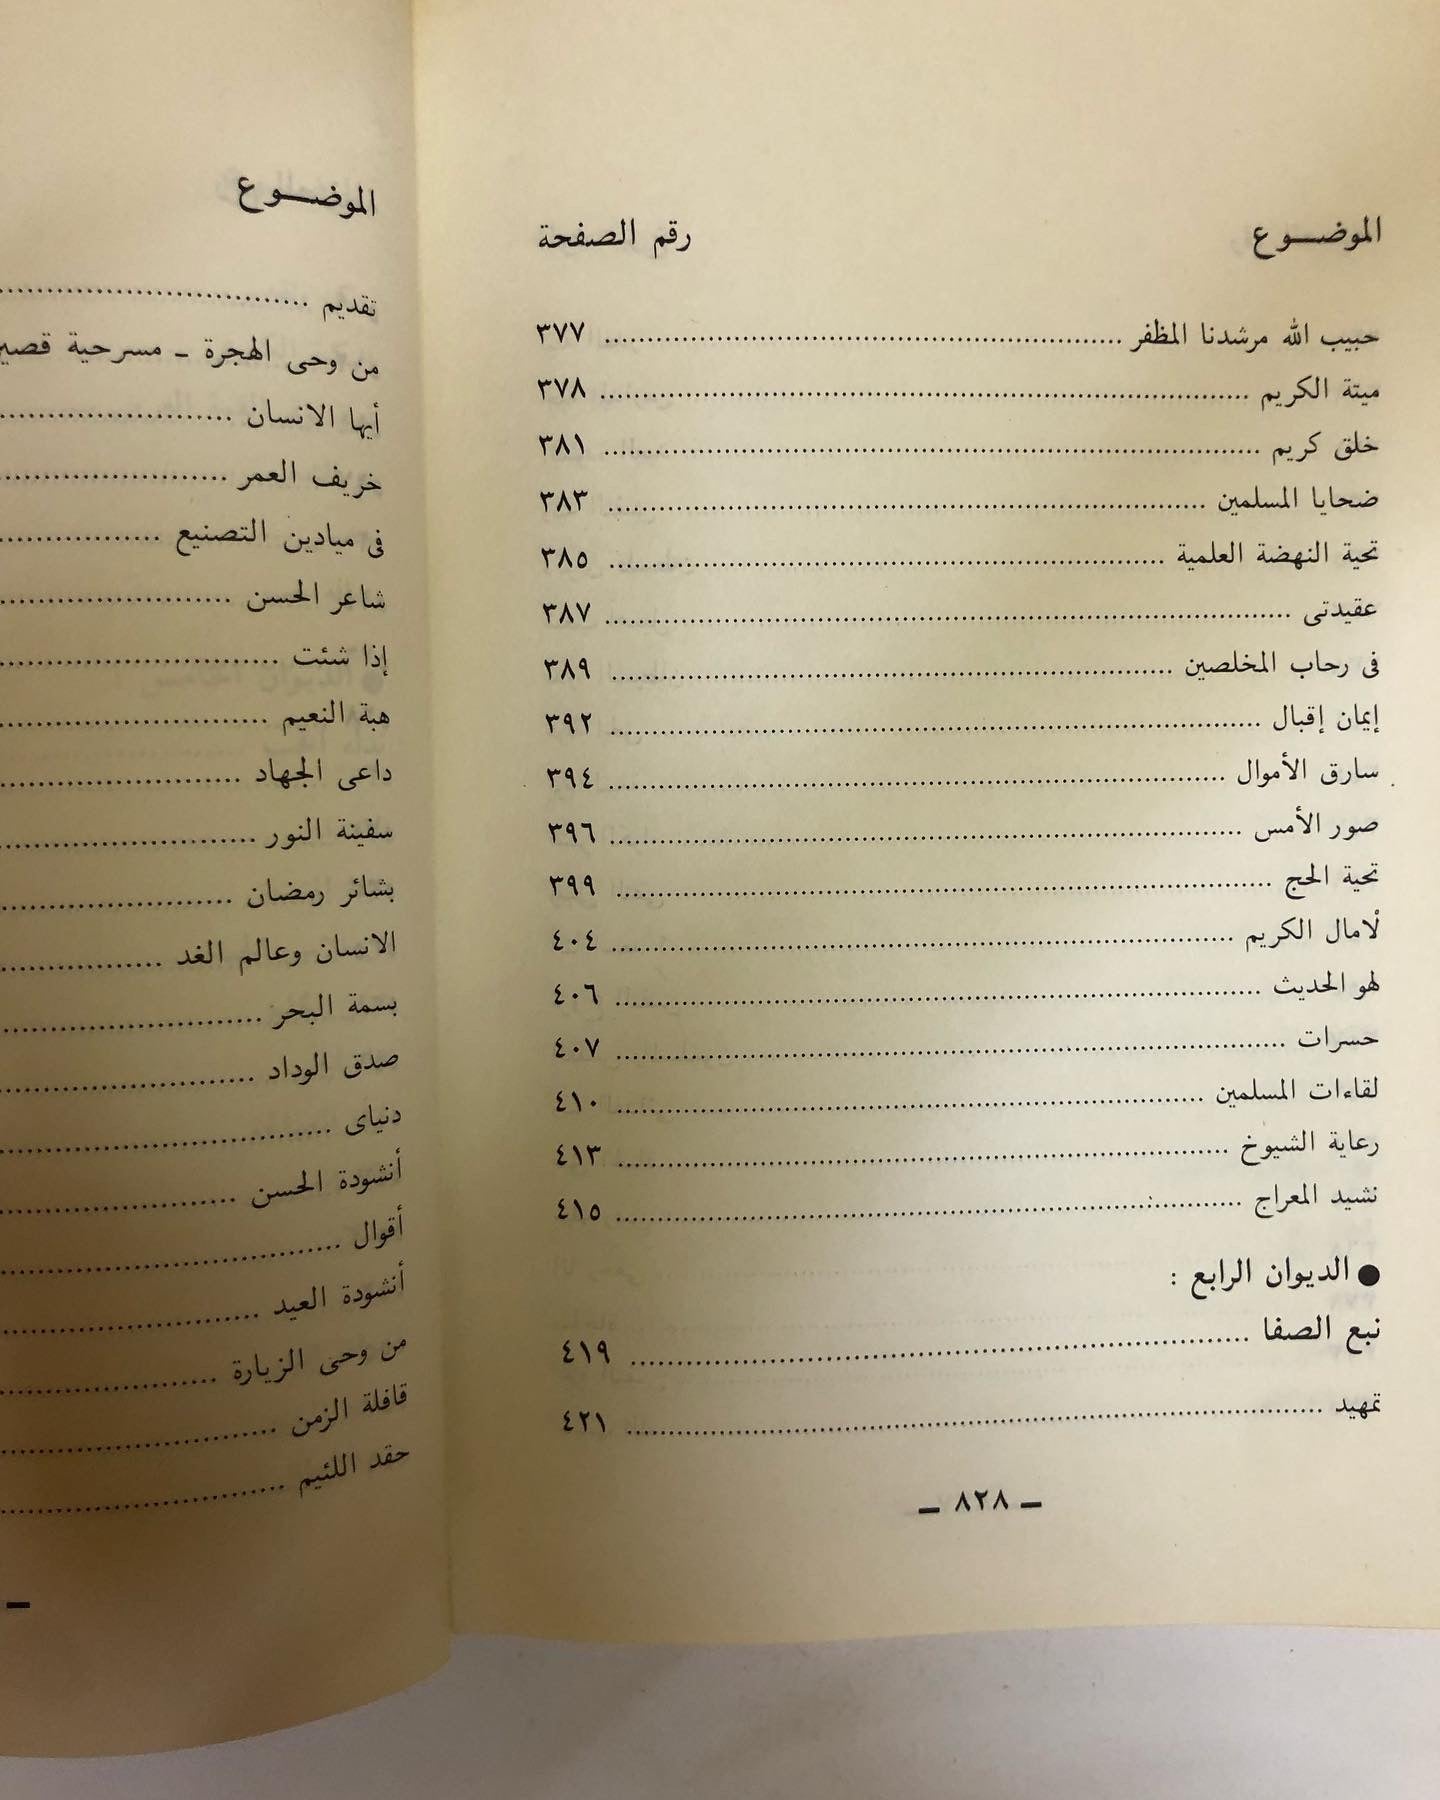 الموضـــوع رقم الصفحة
حبيب الله مرشدنا المظفر ........ ٣٧٧
ميتة الكريم ........ ٣٧٨
خلق كريم ........ ٣٨١
ضحايا المسلمين ........ ٣٨٣
تحية النهضة العلمية ........ ٣٨٥
عقيدتى ........ ٣٨٧
فى رحاب المخلصين ........ ٣٨٩
إيمان إقبال ........ ٣٩٢
سارق الأموال ........ ٣٩٤
صور الأمس ........ ٣٩٦
تحية الحج ........ ٣٩٩
لأمال الكريم ........ ٤٠٤
لهو الحديث ........ ٤٠٦
حسرات ........ ٤٠٧
لقاءات المسلمين ........ ٤١٠
رعاية الشيوخ ........ ٤١٣
نشيد المعراج ........ ٤١٥
● الديوان الرابع :
نبع الصفا ........ ٤١٩
تمهيد ........ ٤٢١
ــ ٨٢٨ ــ
الموضـــوع
تقديم ........
من وحى الهجرة ــ مسرحية
أيها الانسان ........
خريف العمر ........
فى ميادين التصنيع ........
شاعر الحسن ........
إذا شئت ........
هبة النعيم ........
داعى الجهاد ........
سفينة النور ........
بشائر رمضان ........
الانسان وعالم الغد ........
بسمة البحر ........
صدق الوداد ........
دنياى ........
أنشودة الحسن ........
أقوال ........
أنشودة العيد ........
من وحى الزيارة ........
قافلة الزمن ........
حقد اللئيم ........